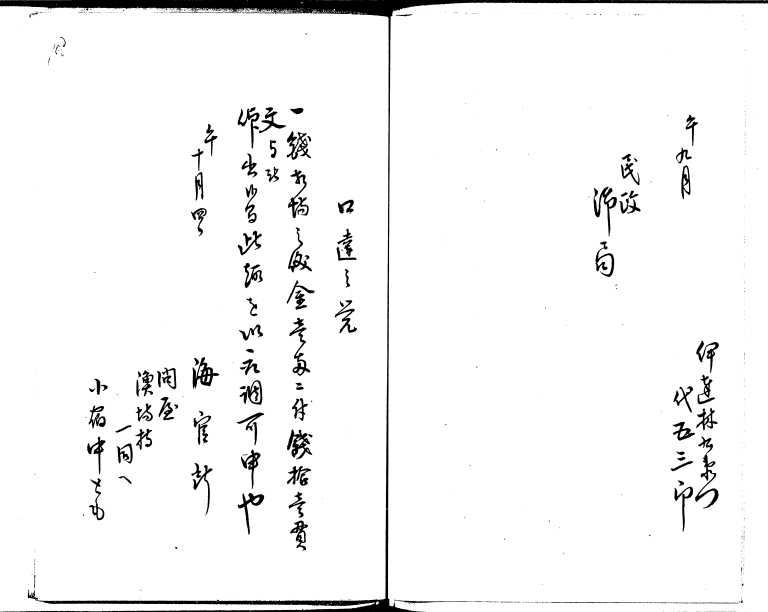 午九月
民政
御局
伊達林右衛門
代五三印
口達之覚
一錢相場之儀金壱両ニ付錢拾壱貫
文与被
仰出候間此趣を以取調可申也
午十月四日
海官所
問屋
漁場持
一同へ
小宿中とも